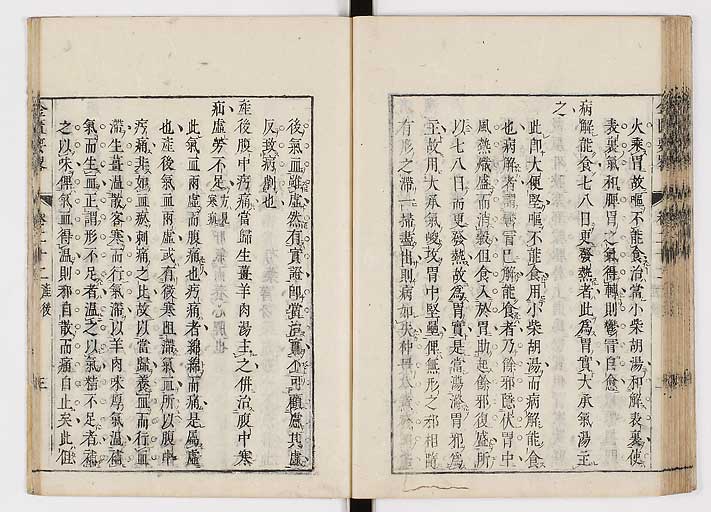 火乘胃故嘔不能食治當小柴胡湯和解表裏使
表裏氣和脾胃之氣得轉則鬱冒自愈
病解能食七八日更發熱者此為胃實大承氣湯主
之
此即大便堅嘔不能食用小柴胡湯而病解能食
也病解者謂鬱冒已解能食者乃餘邪隱伏胃中
風熱熾盛而消穀但食入於胃助起餘邪復盛所
以七八日而更發熱故為胃實是當蕩滌胃邪為
主故用大承氣峻攻胃中堅壘俾無形之邪相隨
有形之滯一掃盡出則病如失仲景
後氣血雖虛然有實證即當治實不可顧慮其虛
反致病劇也
產後腹中㽲痛當歸生薑羊肉湯主之併治腹中寒
疝虛勞不足
此氣血兩虛而腹痛也㽲痛者綿綿而痛是屬虛
也產後氣血兩虛或有微寒阻滯氣血所以腹中
㽲痛非如血瘀刺痛之比故以當歸養血而行血
滯生薑溫散客寒而行氣滯以羊肉味厚氣溫補
氣而生血正謂形不足者溫之以氣精不足者補
之以味俾氣血得溫則邪自散而痛自止矣此但
金匱要略 卷二十二 產後 三